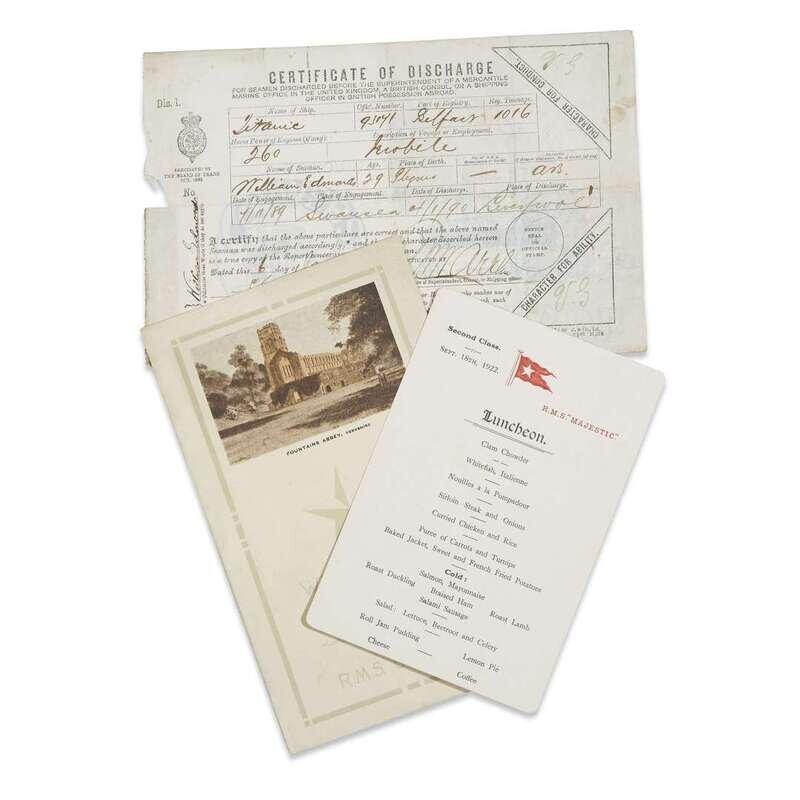 CERTIFICATE OF DISCHARGE
FOR SEAMEN DISCHARGED BEFORE THE SUPERINTENDENT OF A MERCANTILE
MARINE OFFICE IN THE UNITED KINGDOM, A BRITISH CONSUL, OR A SHIPPING
OFFICER IN BRITISH POSSESSION ABROAD.
Dis. 1.
Name of Ship. Offic. Number. Port of Registry. Reg. Tonnage.
Titanic Belfast 1016
Horse Power of Engines (if any) Description of Voyage or Employment.
260 Mobile
Name of Seaman. Age. Place of Birth.
William Edmonds 29
Date of Engagement. Place of Engagement. Date of Discharge. Place of Discharge.
Swansea Liverpool
I certify that the above particulars are correct and that the above named
Seaman was discharged accordingly, and that the character described hereon
is a true copy of the Report concerning
Dated this day of
CHARACTER FOR CONDUCT.
VG
SANCTIONED BY THE
BOARD OF TRADE
No
OFFICE
SEAL
OR
OFFICIAL
STAMP.
CHARACTER FOR ABILITY.
VG
FOUNTAINS ABBEY, YORKSHIRE
R.M.S.
Second Class.
Sept. 18th, 1922.
R.M.S "MAJESTIC"
Luncheon.
Clam Chowder
Whitefish, Italienne
Nouilles a la Pompadour
Sirloin Steak and Onions
Curried Chicken and Rice
Puree of Carrots and Turnips
Baked Jacket, Sweet and French Fried Potatoes
Cold:
Salmon, Mayonnaise
Roast Duckling Braised Ham Roast Lamb
Salami Sausage
Salad: Lettuce, Beetroot and Celery
Roll Jam Pudding Lemon Pie
Cheese Coffee